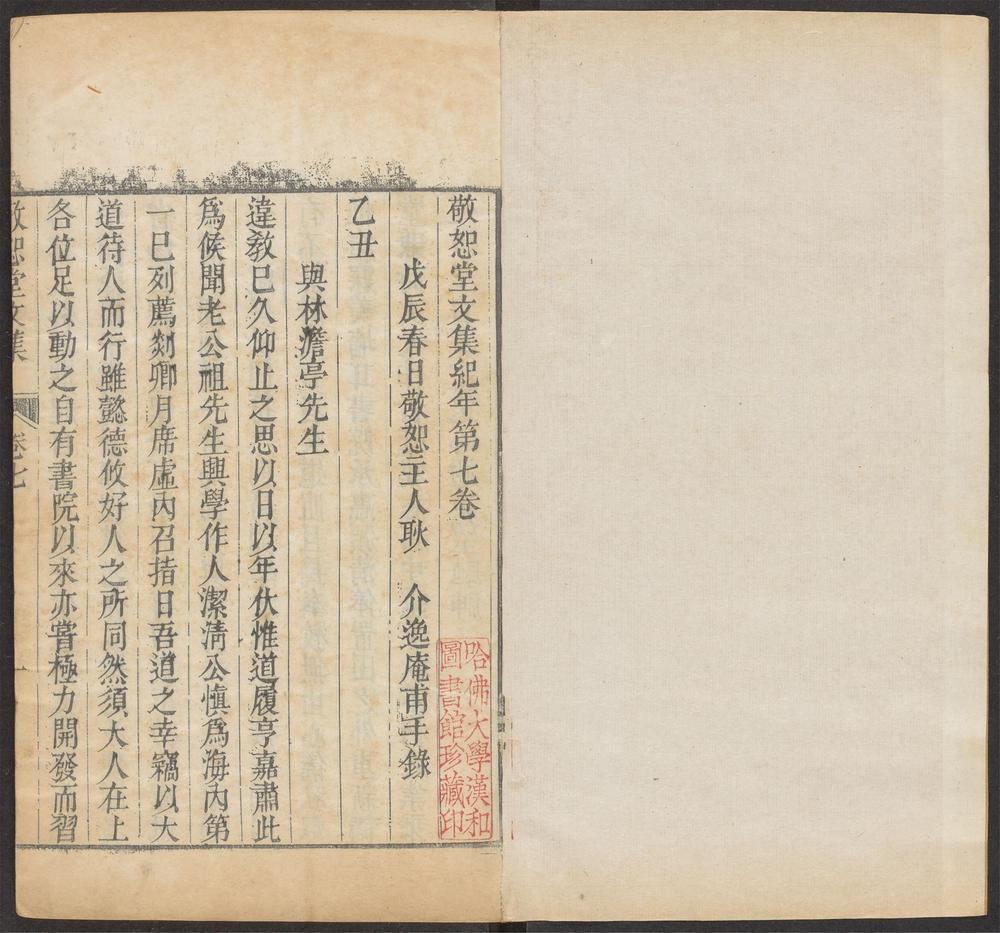 敬恕堂文集紀年第七卷
戊辰春日敬恕主人耿 介逸庵甫手錄
乙丑
與林澹亭先生
違教已久仰止之思以日以年伏惟道履亨嘉肅此
爲候聞老公祖先生興學作人潔淸公愼爲海內第
一已列薦剡卿月席虛內召指日吾道之幸竊以大
道待人而行雖懿德攸好人之所同然須大人在上
各位足以動之自有書院以來亦嘗極力開發而習
敬恕堂文集 卷七 一
哈佛大學漢和
圖書館珍藏印